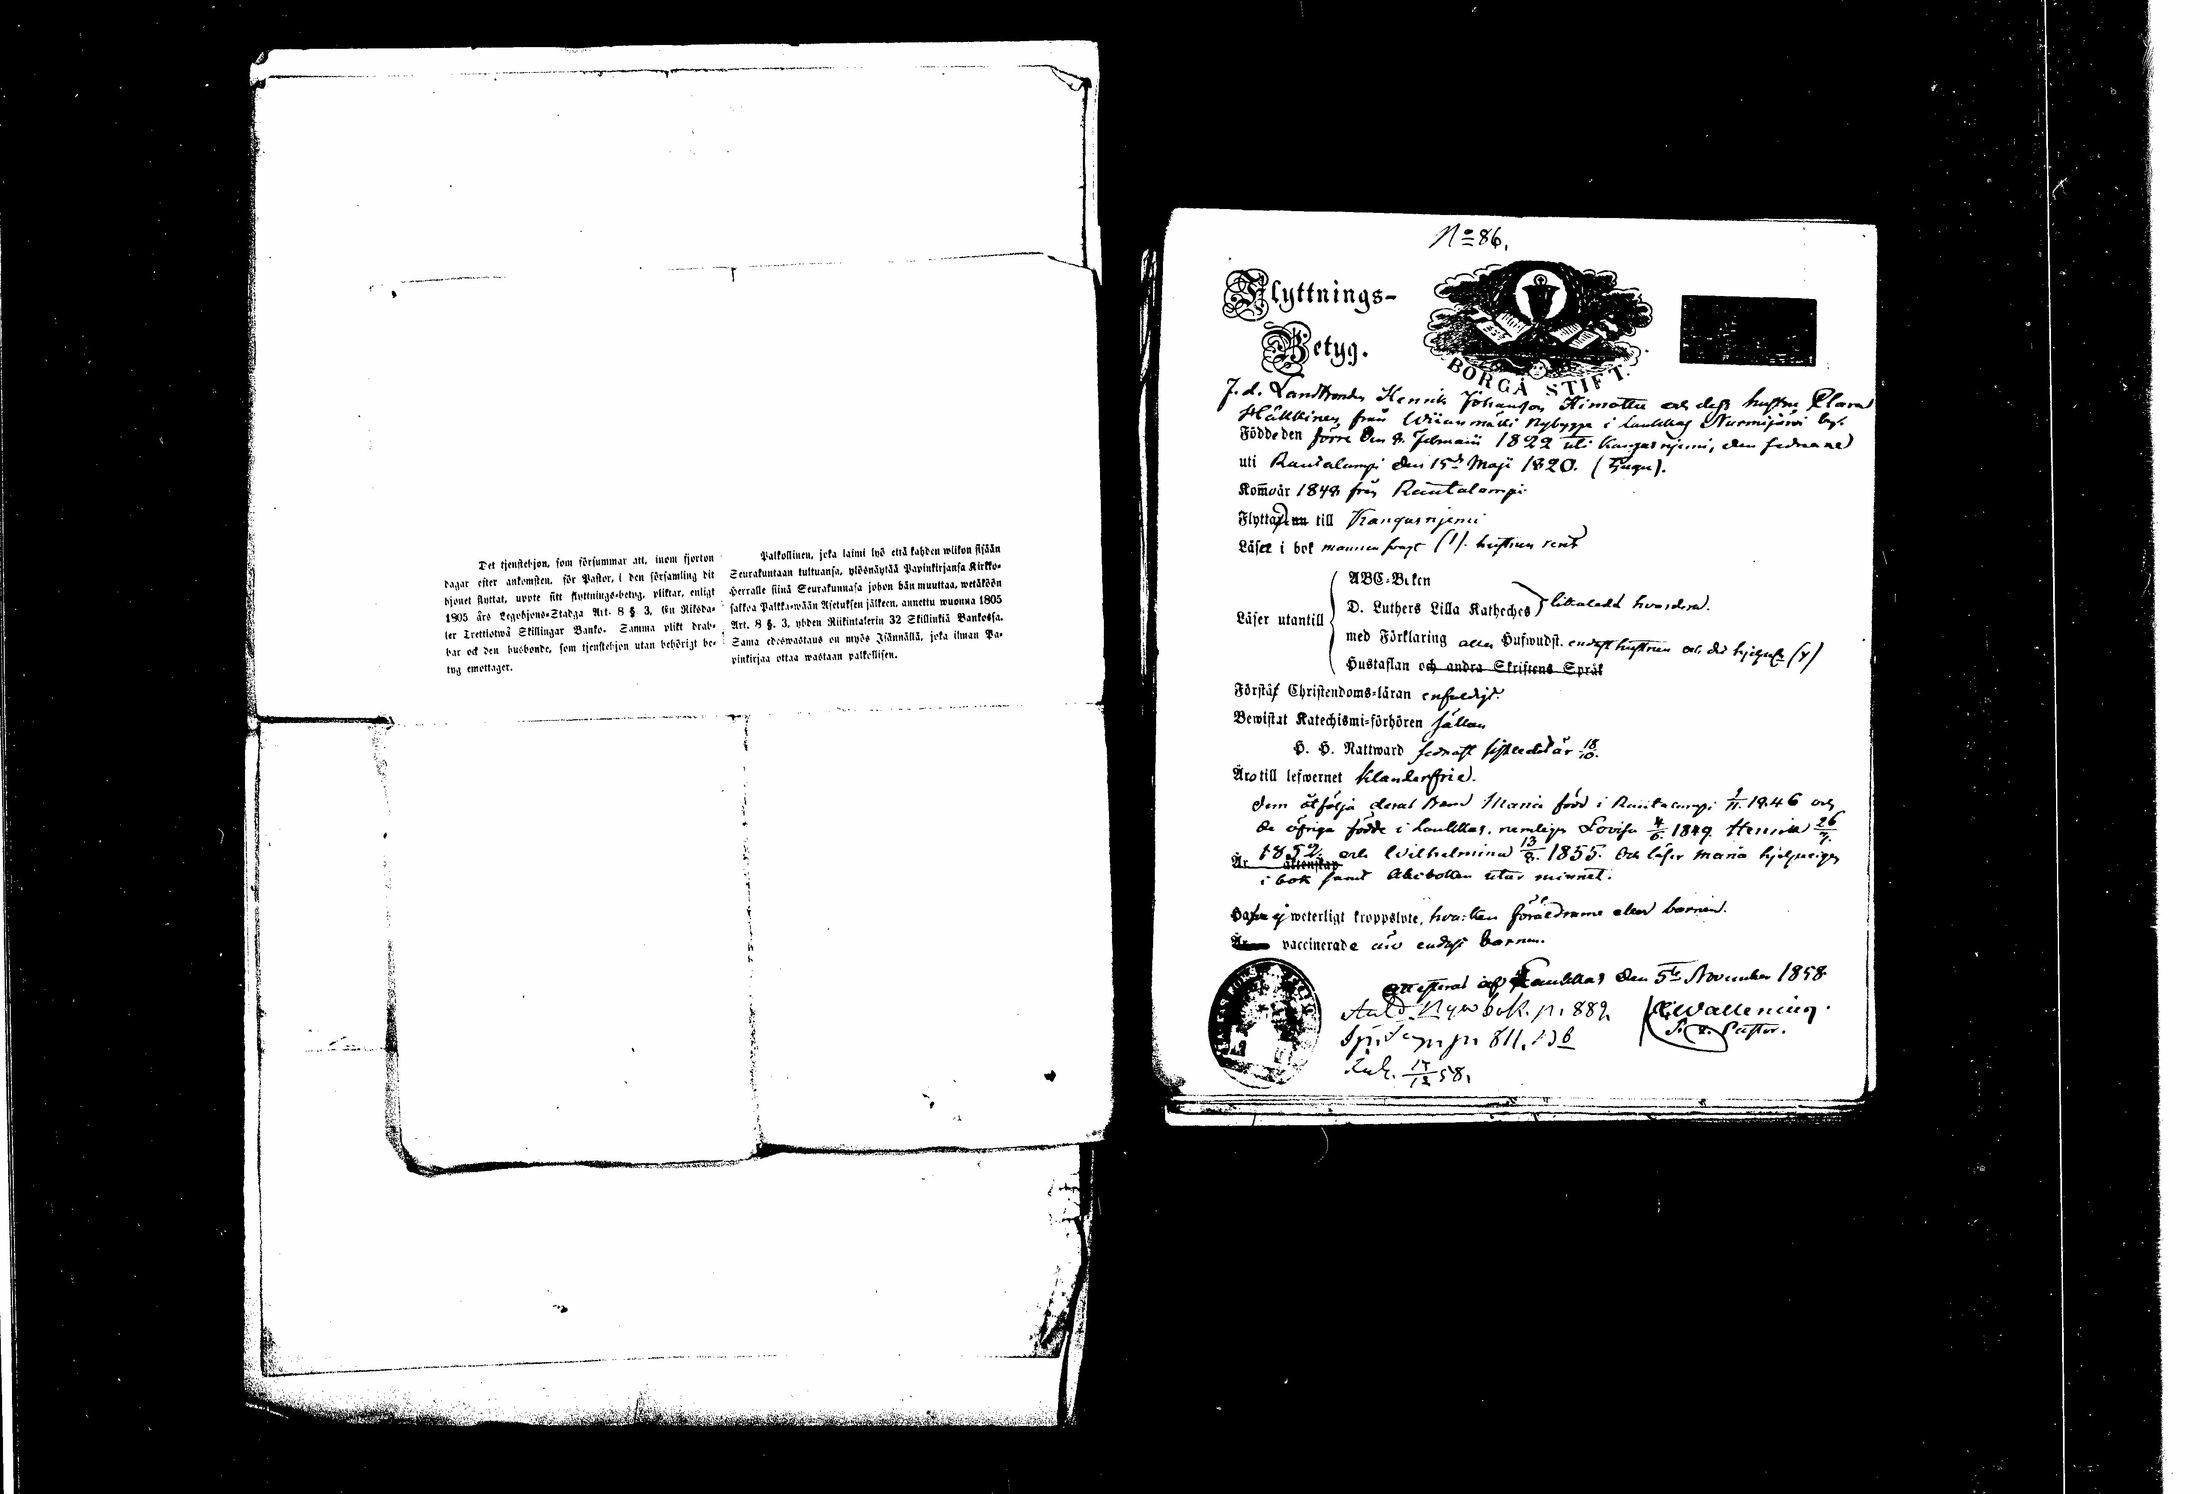 Det tjenstehjon, som försummar att, inom fjorton
dagar efter ankomsten, för Pastor, i den församling dit
hjonet flyttat, uppte sitt flyttnings-betyg, pliktar, enligt
1805 års Legohjons-Stadga Art. 8 §. 3, En Riksda-
ler Trettiotwå Skillingar Banko. Samma plikt drab-
bar ock den husbonde, som tjenstehjon utan behörigt be-
tyg emottager.
Palkollinen, joka laimi lyö että kahden wiikon sisään
Seurakuntaan tultuansa, ylösnäytää Papinkirjansa Kirkko-
Herralle siinä Seurakunnasa johon hän muuttaa, wetäköön
sakkoa Palkka-wään Asetuksen jälkeen, annettu wuonna 1805
Art. 8 §. 3, yhden Riikintalerin 32 Skillinkiä Bankossa.
Sama edeswastaus on myös Isännällä, joka ilman Pa-
pinkirjaa ottaa wastaan palkollisen.
No 86.
Flyttnings-
Betyg.
BORGÅ STIFT.
F. d. Landbonden Henrik Johansson Himottu och dess hustru Clara
Häkkinen, från Nybygge i Laukkas Nurmijärvi by.
Födde den förre den 8. Februarii 1822 uti Kangasnjemi, den sednare
uti Rautalampi den 15de Maji 1820.
Kom̄o år 1848 från Rautalampi
Flytta nu till Kangasnjemi
Läser i bok mannen svagt (1). hustrun rent
ABC-Boken
D. Luthers Lilla Katheches
Läser utantill
med Förklaring eller Hufwudst. endast hustrun och
Hustaflan och andra Skriftens Språk
Förstår Christendoms-läran enfaldigt.
Bewistat Katechismi-förhören sällan
H. H. Nattward sednast 18/10.
Äro till lefwernet klanderfrie.
dem åtfölja deras barn Maria född i Rautalampi 1846 och
de öfrige födde i Laukkas, nemligen Lovisa 4/6. 1849. Henrik 26
1852. och Wilhelmina 13/8. 1855. Och läser Maria hjelpeligen
Är äktenskap
i bok samt Abcboken utur minnet.
Hafva ej weterligt kroppslyte, hvarken föräldrarne eller barnen.
Är vaccinerade äro endast barnen.
attesterar af Laukkas den 5te November 1858
p. 889.
Wallenius.
811.
Pastor.
58.